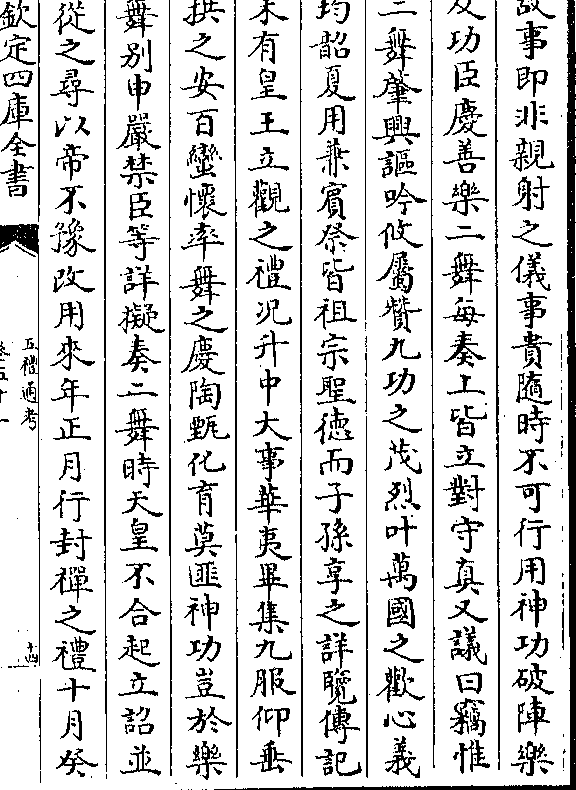 故事即非親射之儀事貴隨時不可行用神功破陣樂
及功臣慶善樂二舞每奏上皆立對守真又議曰竊惟
二舞肇興謳吟攸屬贊九功之茂烈叶萬國之歡心義
均韶夏用兼賓祭皆祖宗聖德而子孫享之詳覽傳記
未有皇王立觀之禮况升中大事華夷畢集九服仰垂
拱之安百蠻懷率舞之慶陶甄化育莫匪神功豈於樂
舞别申嚴禁臣等詳擬奏二舞時天皇不合起立詔並
從之尋以帝不豫改用來年正月行封禪之禮十月癸
欽定四庫全書
五禮通考
十四